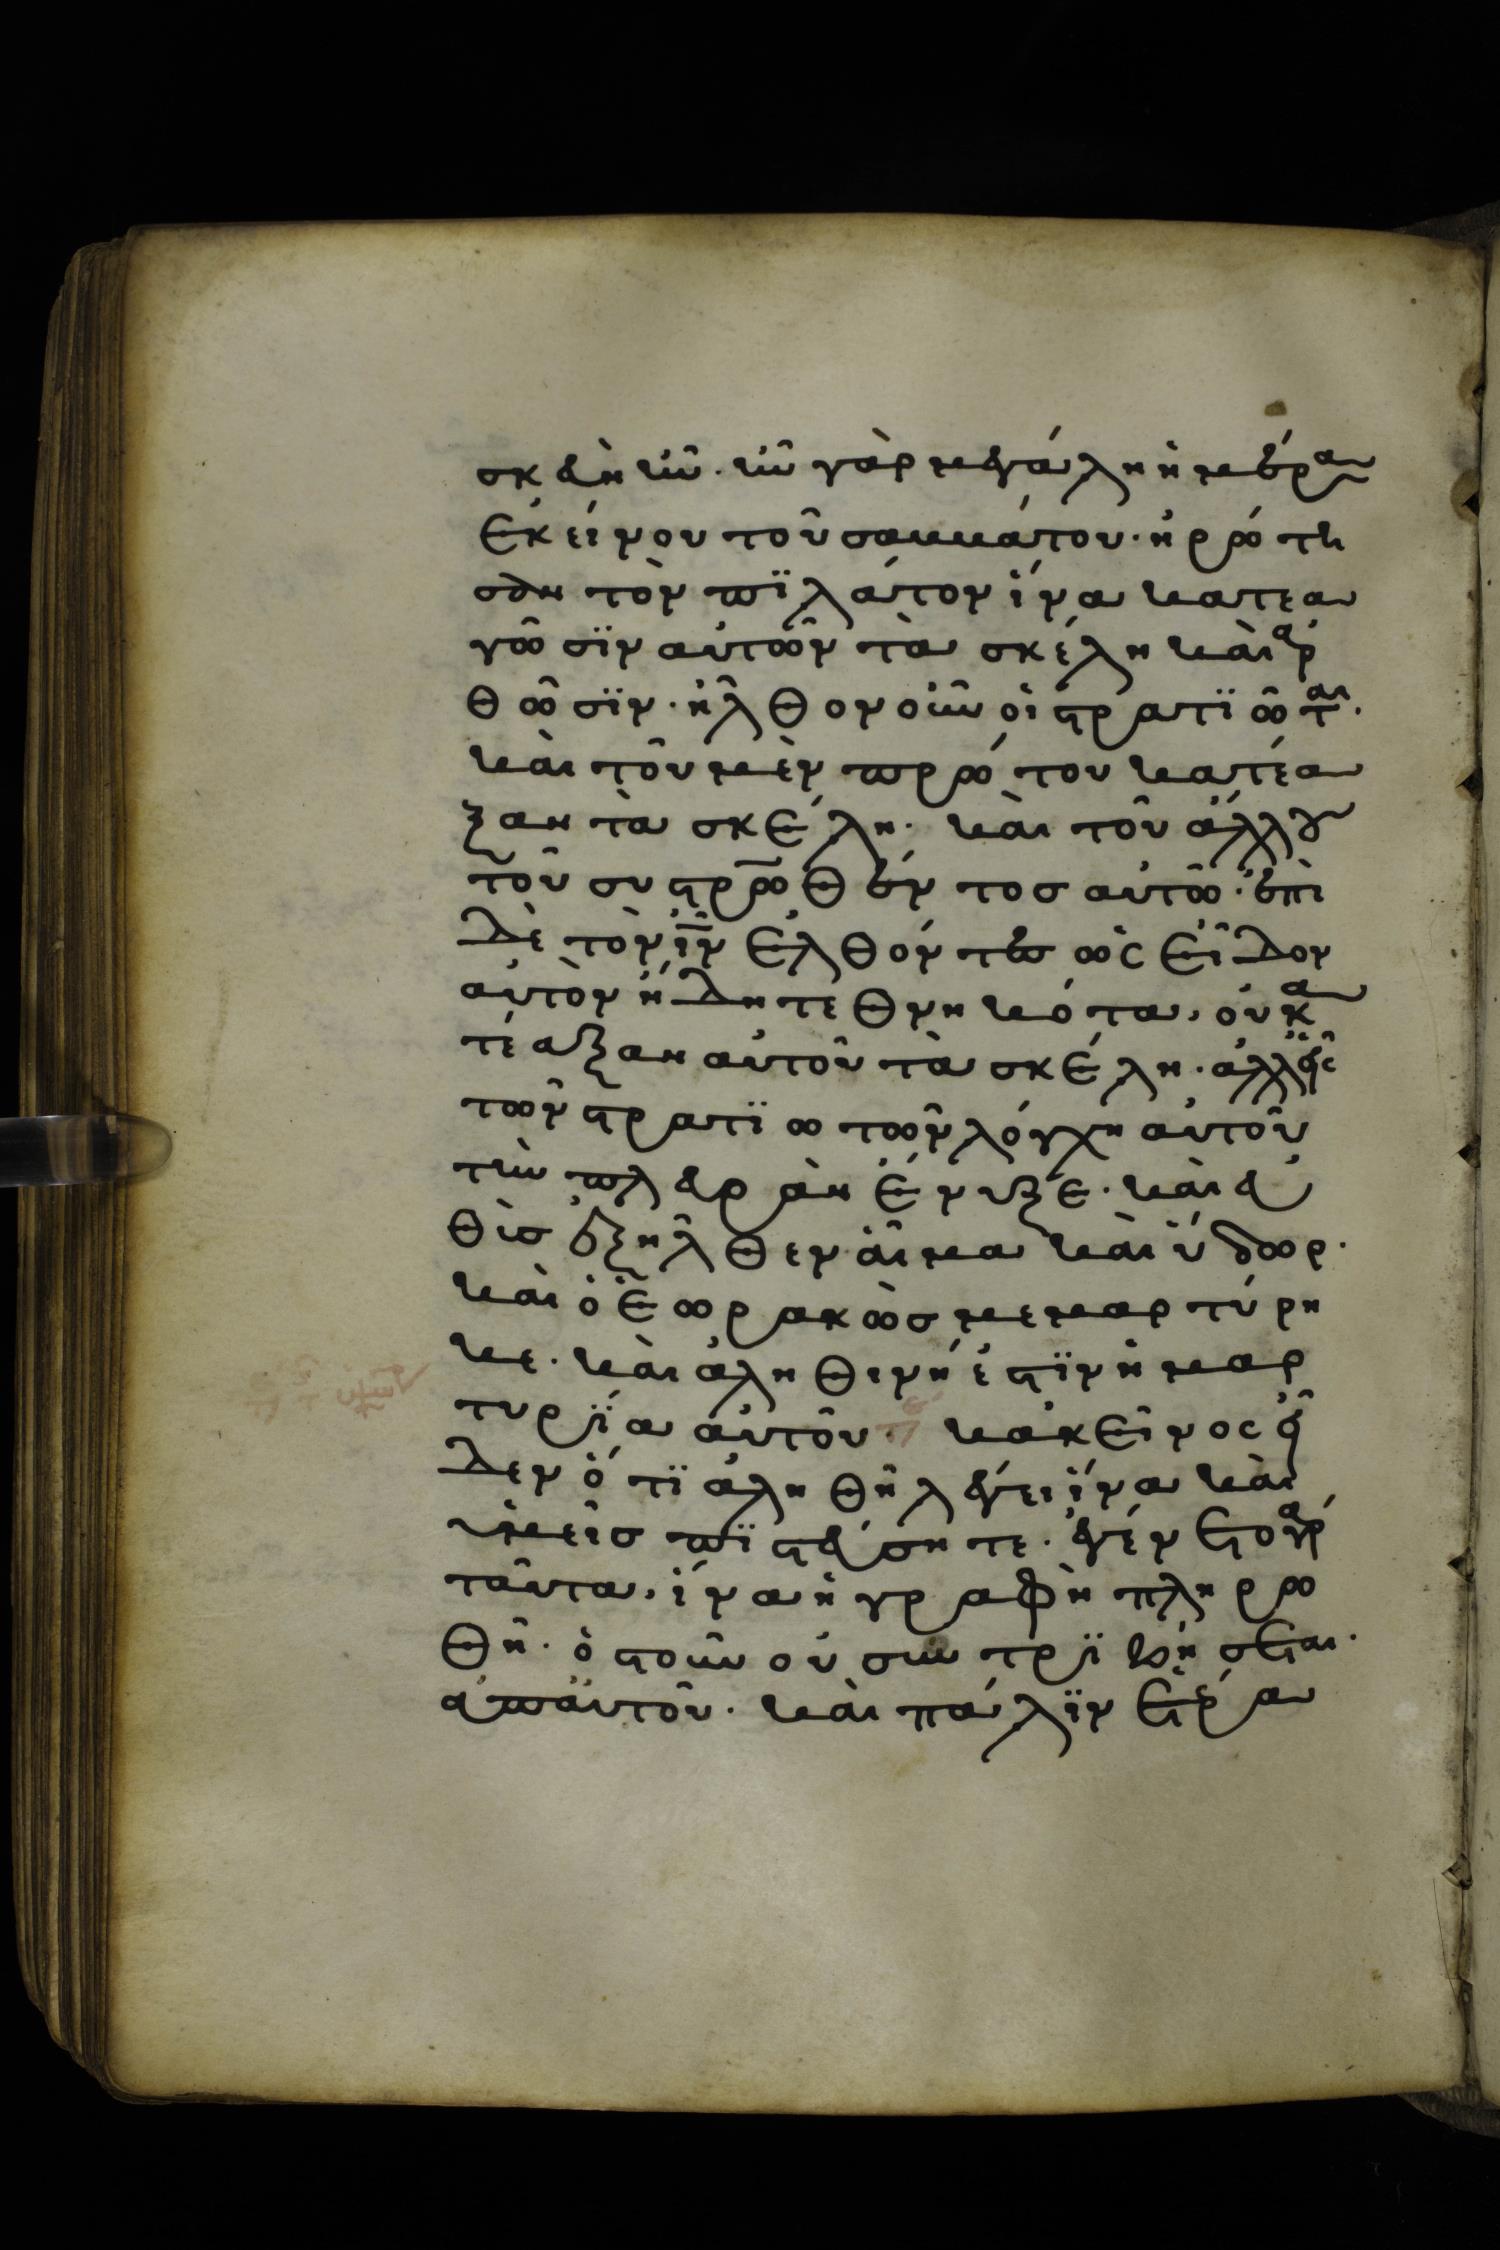 σκευὴ ἦν· ἦν γὰρ μεγάλη ἡ μέρα
ἐκείνου τοῦ σαββάτου· ἠρώτη
σαν τὸν πϊλάτον ἵνα κατεα
γῶσϊν αὐτῶν τὰ σκέλη καὶ ἀρ
θῶσϊν· ἦλθον οὖν οἱ στρατϊῶται·
καὶ τοῦ μὲν πρώτου κατέα
ξαν τὰ σκέλη· καὶ τοῦ ἄλλου
τοῦ συστρωθέντος αὐτῶ· ἐπὶ
δὲ τὸν ι̅ν̅ ἐλθόντες ὡς εἶδον
αὐτὸν ἤδη τεθνηκότα, οὐ κα
τέαξαν αὐτοῦ τὰ σκέλη· ἀλλ' εἷς
τῶν στρατϊωτῶν λόγχη αὐτοῦ
τὴν πλευρὰν ἔνυξε· καὶ εὐ
θὺς ἐξῆλθεν αἷμα καὶ ὕδωρ·
καὶ ὁ ἑωρακὼς μεμαρτύρη
κε· καὶ ἀληθινή ἐστϊν ἡ μαρ
τυρΐα αὐτοῦ· κἀκεῖνος οἶ
δεν ὅτϊ ἀληθῆ λέγει ἵνα καὶ
ὑμεῖς πϊστεύσητε· ἐγένετο γὰρ
ταῦτα, ἵνα ἡ γραφὴ πληρω
θῆ· ὀστοῦν οὐ συντρϊβήσεται·
ἀπ' αὐτοῦ· καὶ πάλϊν ἑτέρα